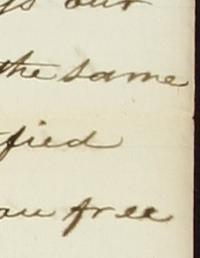 our
the same
fied
free